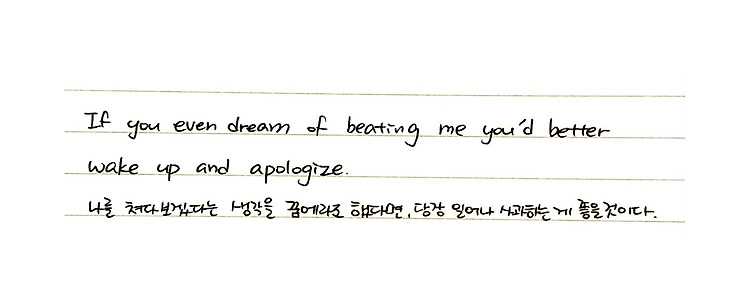 If you even dream of beating me you'd better
wake up and apologize.
나를 쳐다보겠다는 생각을 꿈에라도 했다면, 당장 일어나 사과하는 게 좋을것이다.